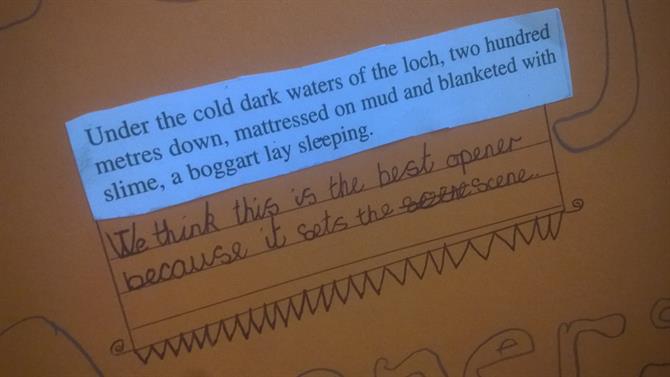 Under the cold dark waters of the loch, two hundred
metres down, mattressed on mud and blanketed with
slime, a boggart lay sleeping.
We think this is the best opener
because it sets the scene.